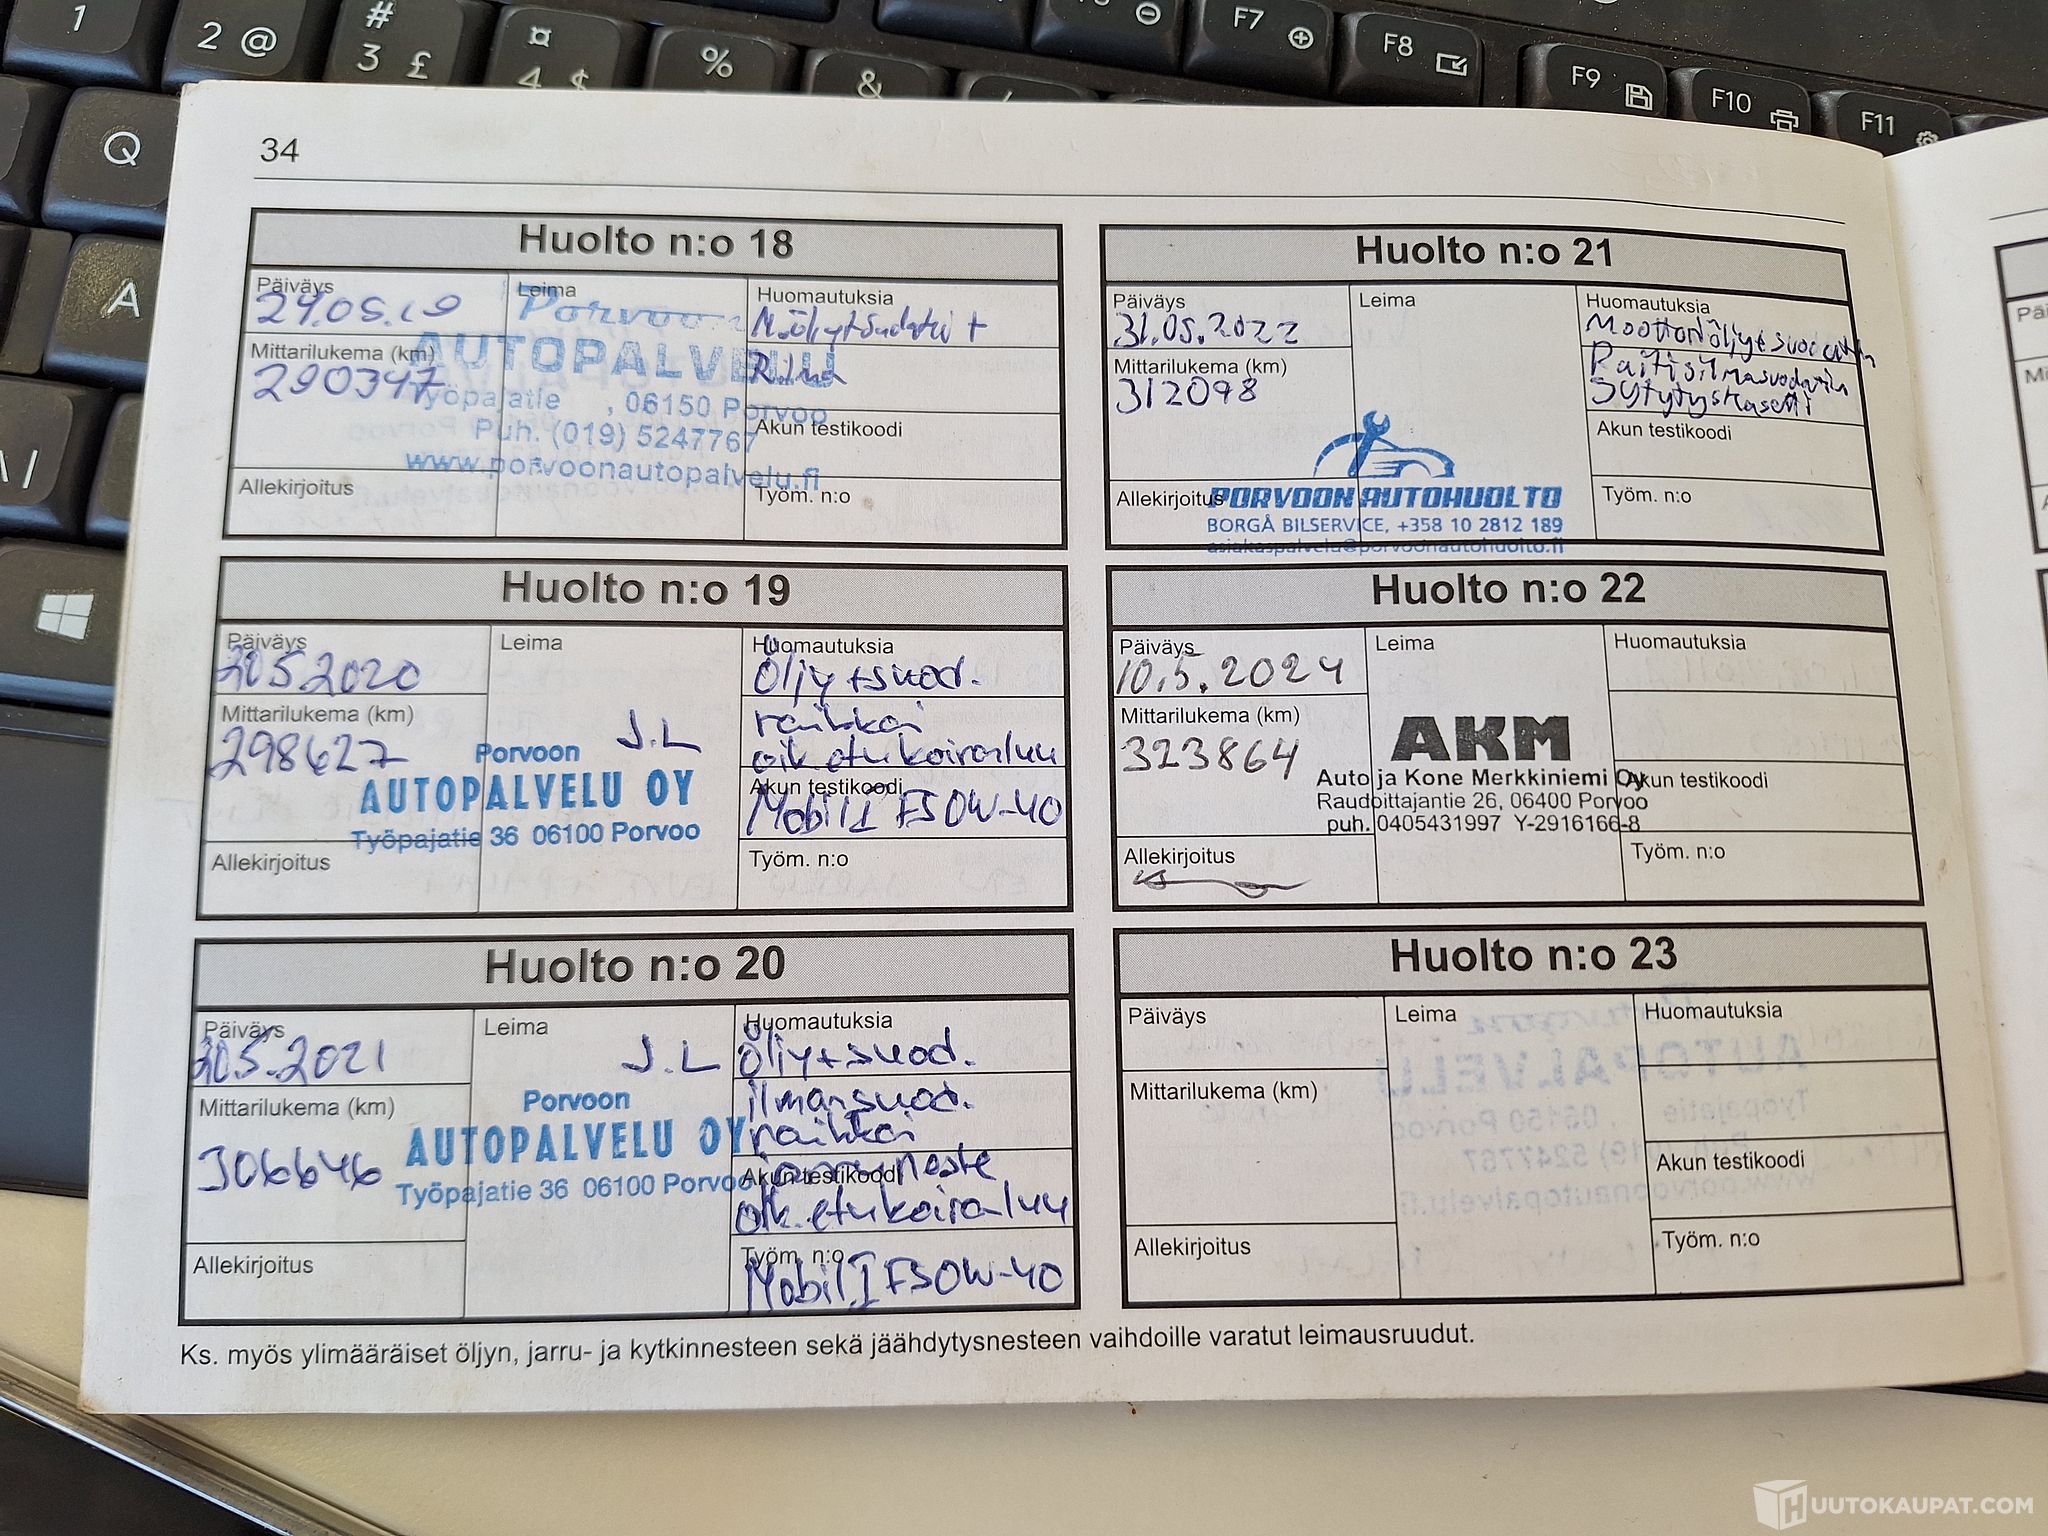 1
2 @
#
3 £
¤
4 $
%
&
F7
F8
F9
F10
F11
Q
A
34
Huolto n:o 18
Päiväys
Leima
Huomautuksia
24.05.19
Porvoon
M.öljyt
Mittarilukema (km)
AUTOPALVELU
290347
Työpajatie , 06150 Porvoo
Puh. (019) 5247767
Akun testikoodi
www.porvoonautopalvelu.fi
Allekirjoitus
Työm. n:o
Huolto n:o 19
Päiväys
Leima
Huomautuksia
20.5.2020
Öljy+suod.
Mittarilukema (km)
raikkoi
298627
J.L
oik.etukoiranluu
Porvoon
AUTOPALVELU OY
Akun testikoodi
Mobil 1 FS 0W-40
Työpajatie 36 06100 Porvoo
Allekirjoitus
Työm. n:o
Huolto n:o 20
Päiväys
Leima
Huomautuksia
20.5.2021
J.L
Öljy+suod.
Mittarilukema (km)
ilmansuod.
Porvoon
raikkoi
AUTOPALVELU OY
306646
jarruneste
Akun testikoodi
Työpajatie 36 06100 Porvoo
oik.etukoiranluu
Allekirjoitus
Työm. n:o
Mobil 1 FS 0W-40
Huolto n:o 21
Päiväys
Leima
Huomautuksia
31.05.2022
Moottoriöljyt suodatin
Mittarilukema (km)
Raitisilmasuodatin
312098
Sytytyskasetti
Akun testikoodi
Allekirjoitus
PORVOON AUTOHUOLTO
Työm. n:o
BORGÅ BILSERVICE, +358 10 2812 189
asiakaspalvelu@porvoonautohuolto.fi
Huolto n:o 22
Päiväys
Leima
Huomautuksia
10.5.2024
Mittarilukema (km)
AKM
323864
Auto ja Kone Merkkiniemi Oy
Akun testikoodi
Raudoittajantie 26, 06400 Porvoo
puh. 0405431997 Y-2916166-8
Allekirjoitus
Työm. n:o
Huolto n:o 23
Päiväys
Leima
Huomautuksia
Mittarilukema (km)
Akun testikoodi
Allekirjoitus
Työm. n:o
Ks. myös ylimääräiset öljyn, jarru- ja kytkinnesteen sekä jäähdytysnesteen vaihdoille varatut leimausruudut.
HUUTOKAUPAT.COM